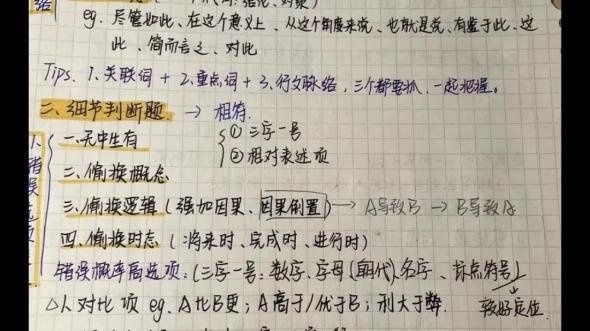 结论、对策)
eg. 尽管如此、在这个意义上、从这个角度来说、也就是说、有鉴于此、这
此、简而言之、对此
Tips. 1.关联词 + 2.重点词 + 3.行文脉络,三个都要抓,一起把握。
二、细节判断题. → 相符.
一.无中生有
①三字一号
②相对表述项
二.偷换概念
三.偷换逻辑(强加因果、因果倒置)→ A导致B → B导致A
四.偷换时态(将来时、完成时、进行时)
错误概率高选项:(三字一号:数字、字母(朝代)、名字、标点符号)
△1.对比项 eg. A比B更;A高于/优于B;利大于弊.
较好定位.
1.错误选项